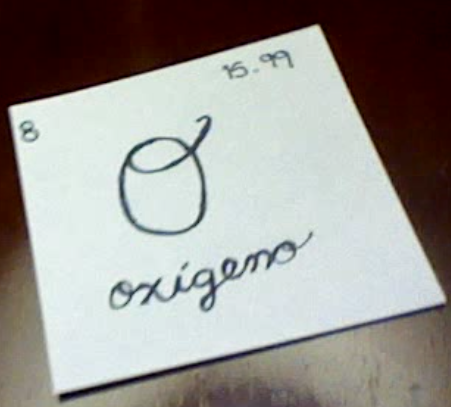 15.99
8
O
oxígeno